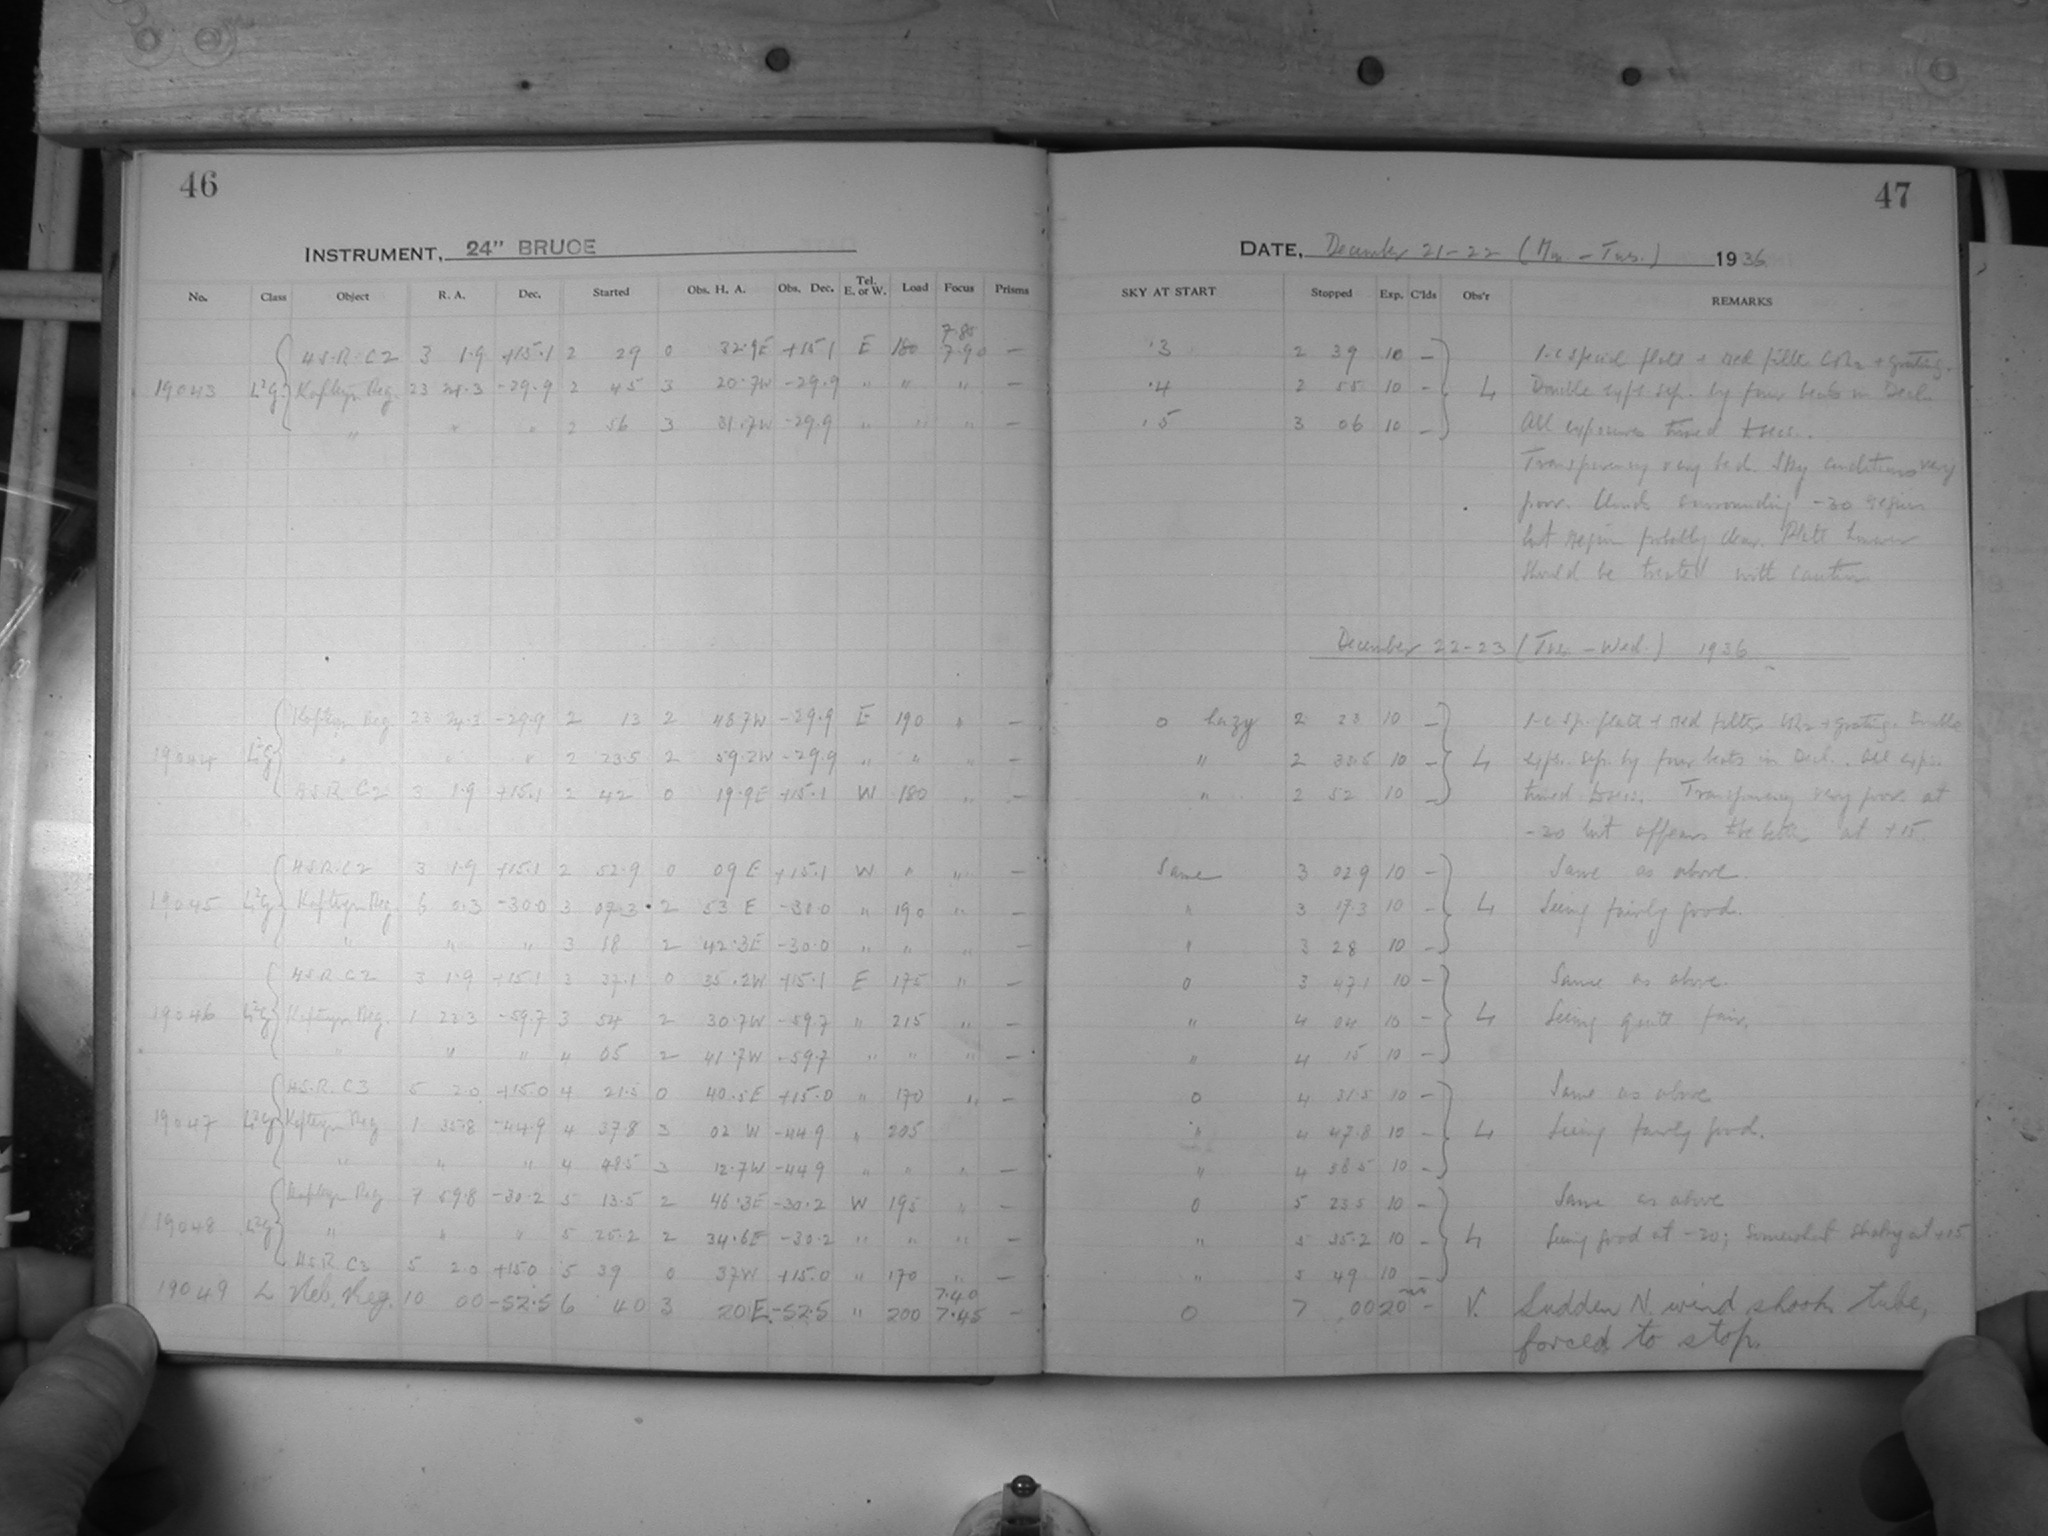 46
47
INSTRUMENT, 24" BRUCE
DATE, December 21-22 (Mn. - Tues.) 1936
No. Class Object R. A. Dec. Started Obs. H. A. Obs. Dec. Tel. E. or W. Load Focus Prisms SKY AT START Stopped Exp. C'lds Obs'r REMARKS
7.80
H.S.R. C2 3 1.9 +15.1 2 29 0 32.9E +15.1 E 180 7.90 — .3 2 39 10 — 1-c special plate + red filter + grating.
19043 Kapteyn Reg. 23 24.3 -29.9 2 45 3 20.7W -29.9 " " " — .4 2 55 10 — L Double exps. sep. by four beats in Decl.
" " " 2 56 3 31.7W -29.9 " " " — .5 3 06 10 — All exposures timed
Transparency very bad. Sky conditions very
poor. Clouds surrounding -30 region
but region probably clear. Plate however
should be treated with caution
December 22-23 (Tues - Wed.) 1936
Kapteyn Reg. 23 24.3 -29.9 2 13 2 48.7W -29.9 E 190 " — 0 hazy 2 23 10 — 1-c sp. plate + red filter + grating. Double
19044 " " " 2 23.5 2 59.2W -29.9 " " " — " 2 33.5 10 — L exps. sep. by four beats in Decl. All exps.
H.S.R. C2 3 1.9 +15.1 2 42 0 19.9E +15.1 W 180 " — " 2 52 10 — timed Transparency very poor at
-30 but appears better at +15.
H.S.R. C2 3 1.9 +15.1 2 52.9 0 09 E +15.1 W " " — Same 3 02.9 10 — Same as above.
19045 Kapteyn Reg. 6 0.3 -30.0 3 07.3 2 53 E -30.0 " 190 " — " 3 17.3 10 — L Seeing fairly good.
" " " 3 18 2 42.3E -30.0 " " " — " 3 28 10 —
H.S.R. C2 3 1.9 +15.1 3 37.1 0 35.2W +15.1 E 175 " — 0 3 47.1 10 — Same as above.
19046 Kapteyn Reg. 1 23.3 -59.7 3 54 2 30.7W -59.7 " 215 " — " 4 04 10 — L Seeing quite fair.
" " " 4 05 2 41.7W -59.7 " " " — " 4 15 10 —
H.S.R. C3 5 2.0 +15.0 4 21.5 0 40.5E +15.0 " 170 " — 0 4 31.5 10 — Same as above
19047 Kapteyn Reg 1 35.8 -44.9 4 37.8 3 02 W -44.9 " 205 " 4 47.8 10 — L Seeing fairly good.
" " " 4 48.5 3 12.7W -44.9 " " " — " 4 58.5 10 —
Kapteyn Reg. 7 59.8 -30.2 5 13.5 2 46.3E -30.2 W 195 " — 0 5 23.5 10 — Same as above
19048 " " " 5 25.2 2 34.6E -30.2 " " " — " 5 35.2 10 — L Seeing good at -30; Somewhat shaky at +15
H.S.R. C3 5 2.0 +15.0 5 39 0 37W +15.0 " 170 " — " 5 49 10 —
7.40
19049 L Neb. Reg. 10 00 -52.5 6 40 3 20E -52.5 " 200 7.45 — 0 7 00 20 — V. Sudden N. wind shook tube,
forced to stop.